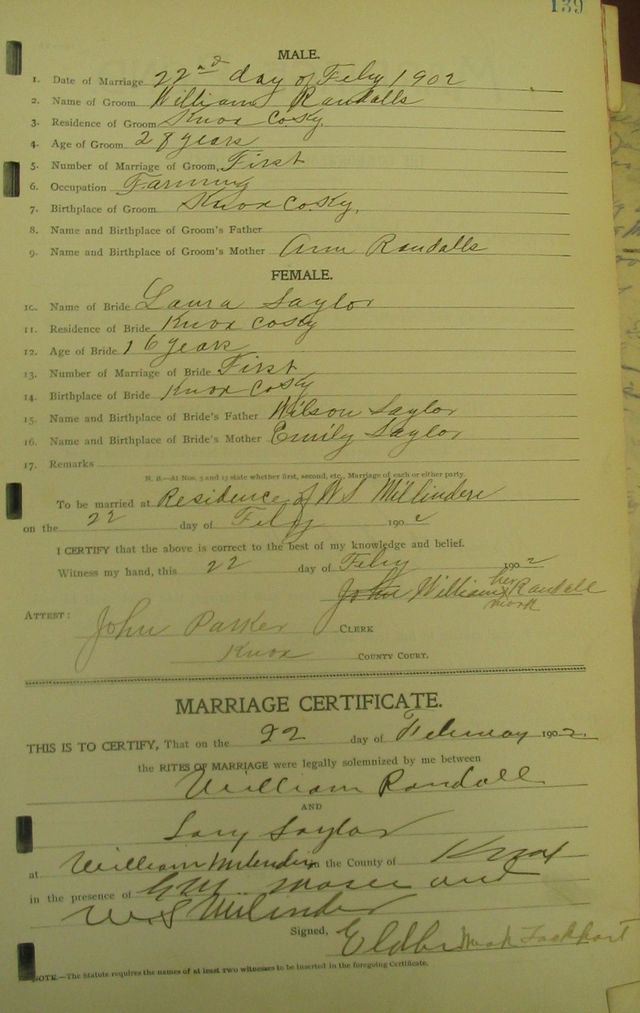 139
MALE.
1. Date of Marriage 22nd day of Feby 1902
2. Name of Groom William Randalls
3. Residence of Groom Knox Co Ky.
4. Age of Groom 28 years
5. Number of Marriage of Groom, First
6. Occupation Farming
7. Birthplace of Groom Knox Co. Ky.
8. Name and Birthplace of Groom's Father
9. Name and Birthplace of Groom's Mother Ann Randalls
FEMALE.
10. Name of Bride Laura Saylor
11. Residence of Bride Knox Co Ky
12. Age of Bride 16 years
13. Number of Marriage of Bride First
14. Birthplace of Bride Knox Co Ky
15. Name and Birthplace of Bride's Father Wilson Saylor
16. Name and Birthplace of Bride's Mother Emily Saylor
17. Remarks
N. B.—At Nos. 5 and 13 state whether first, second, etc. Marriage of each or either party.
To be married at Residence of W S Millinders
on the 22 day of Feby 1902
I CERTIFY that the above is correct to the best of my knowledge and belief.
Witness my hand, this 22 day of Feby 1902
John William her x mark Randall
ATTEST:
John Parker CLERK
Knox COUNTY COURT.
MARRIAGE CERTIFICATE.
THIS IS TO CERTIFY, That on the 22 day of February 1902
the RITES OF MARRIAGE were legally solemnized by me between
William Randall
AND
Saylor
at William in the County of Knox
in the presence of and
W S
Signed, Lockhart
NOTE.—The Statute requires the names of at least two witnesses to be inserted in the foregoing Certificate.